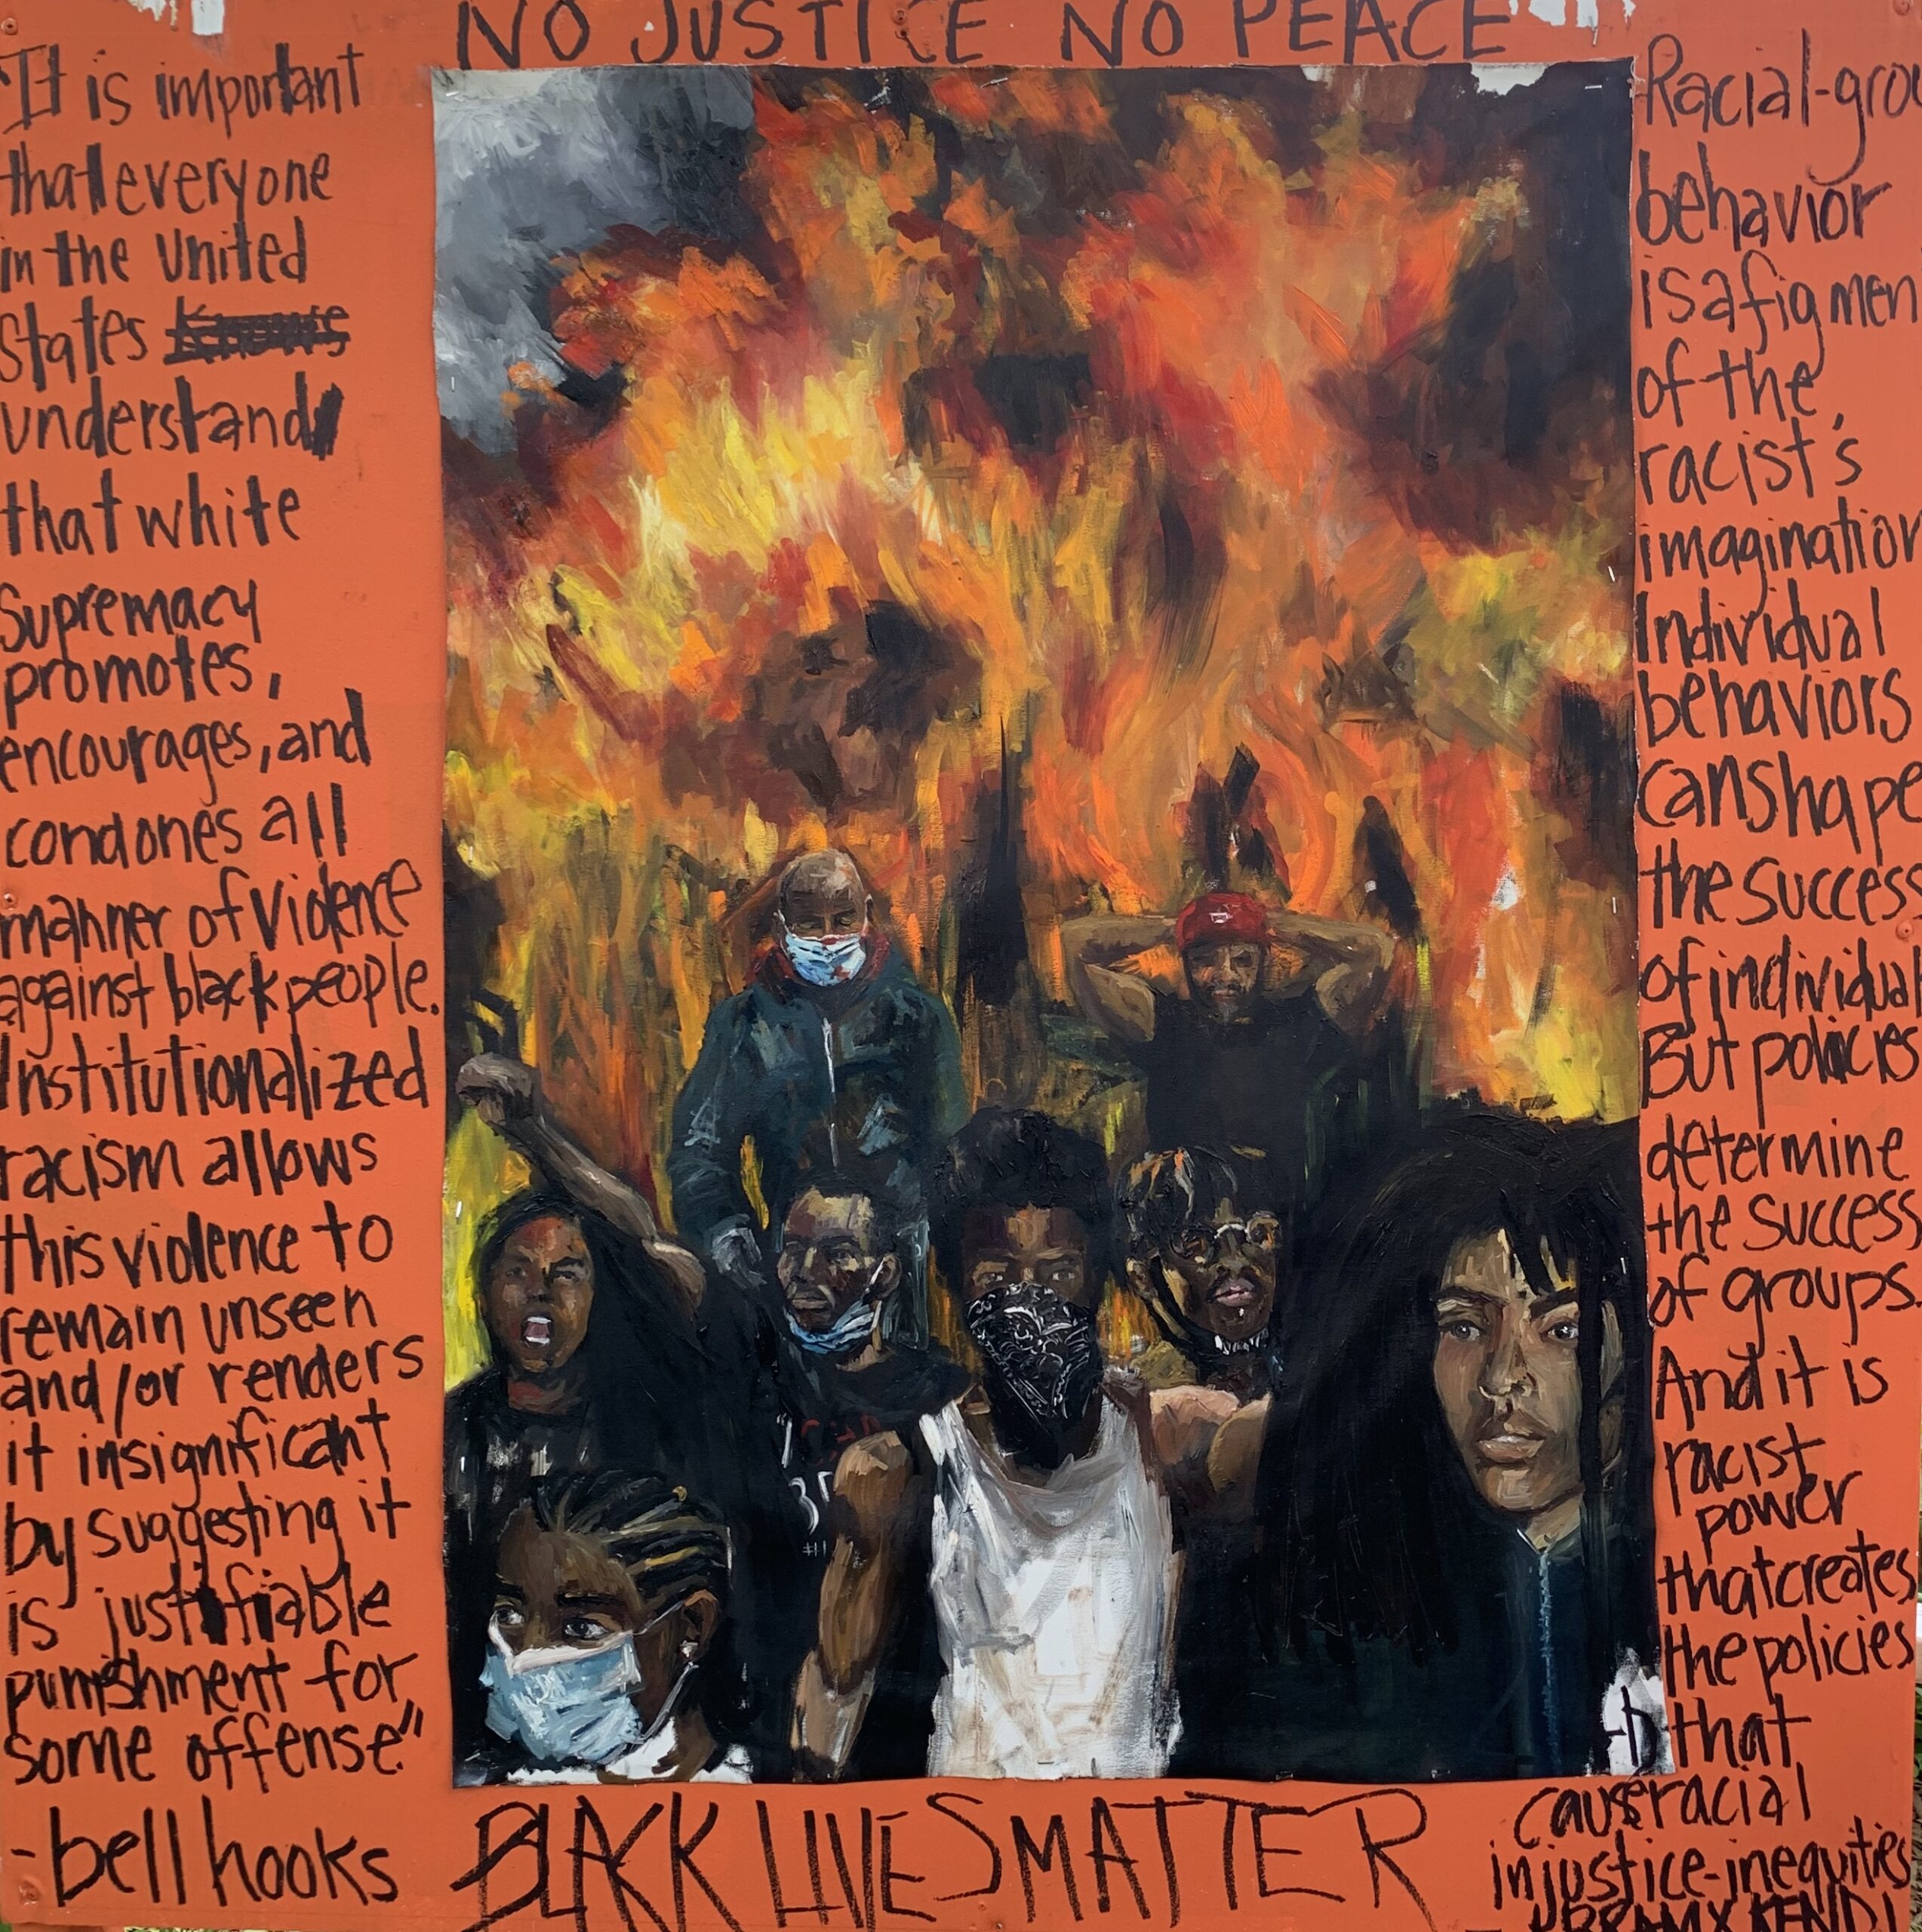 NO JUSTICE NO PEACE
"It is important
that everyone
in the United
States
understand
that white
Supremacy
promotes,
encourages, and
condones all
manner of violence
against black people.
Institutionalized
racism allows
this violence to
remain unseen
and/or renders
it insignificant
by suggesting it
is justifiable
punishment for
some offense."
-bell hooks
Racial-grou
behavior
is a figmen
of the
racist's
imagination
Individual
behaviors
can shape
the success
of individual
But policies
determine
the success
of groups.
And it is
racist
power
that creates
the policies
that
cause racial
injustice-inequities
IBRAM X KENDI
BLACK LIVES MATTER